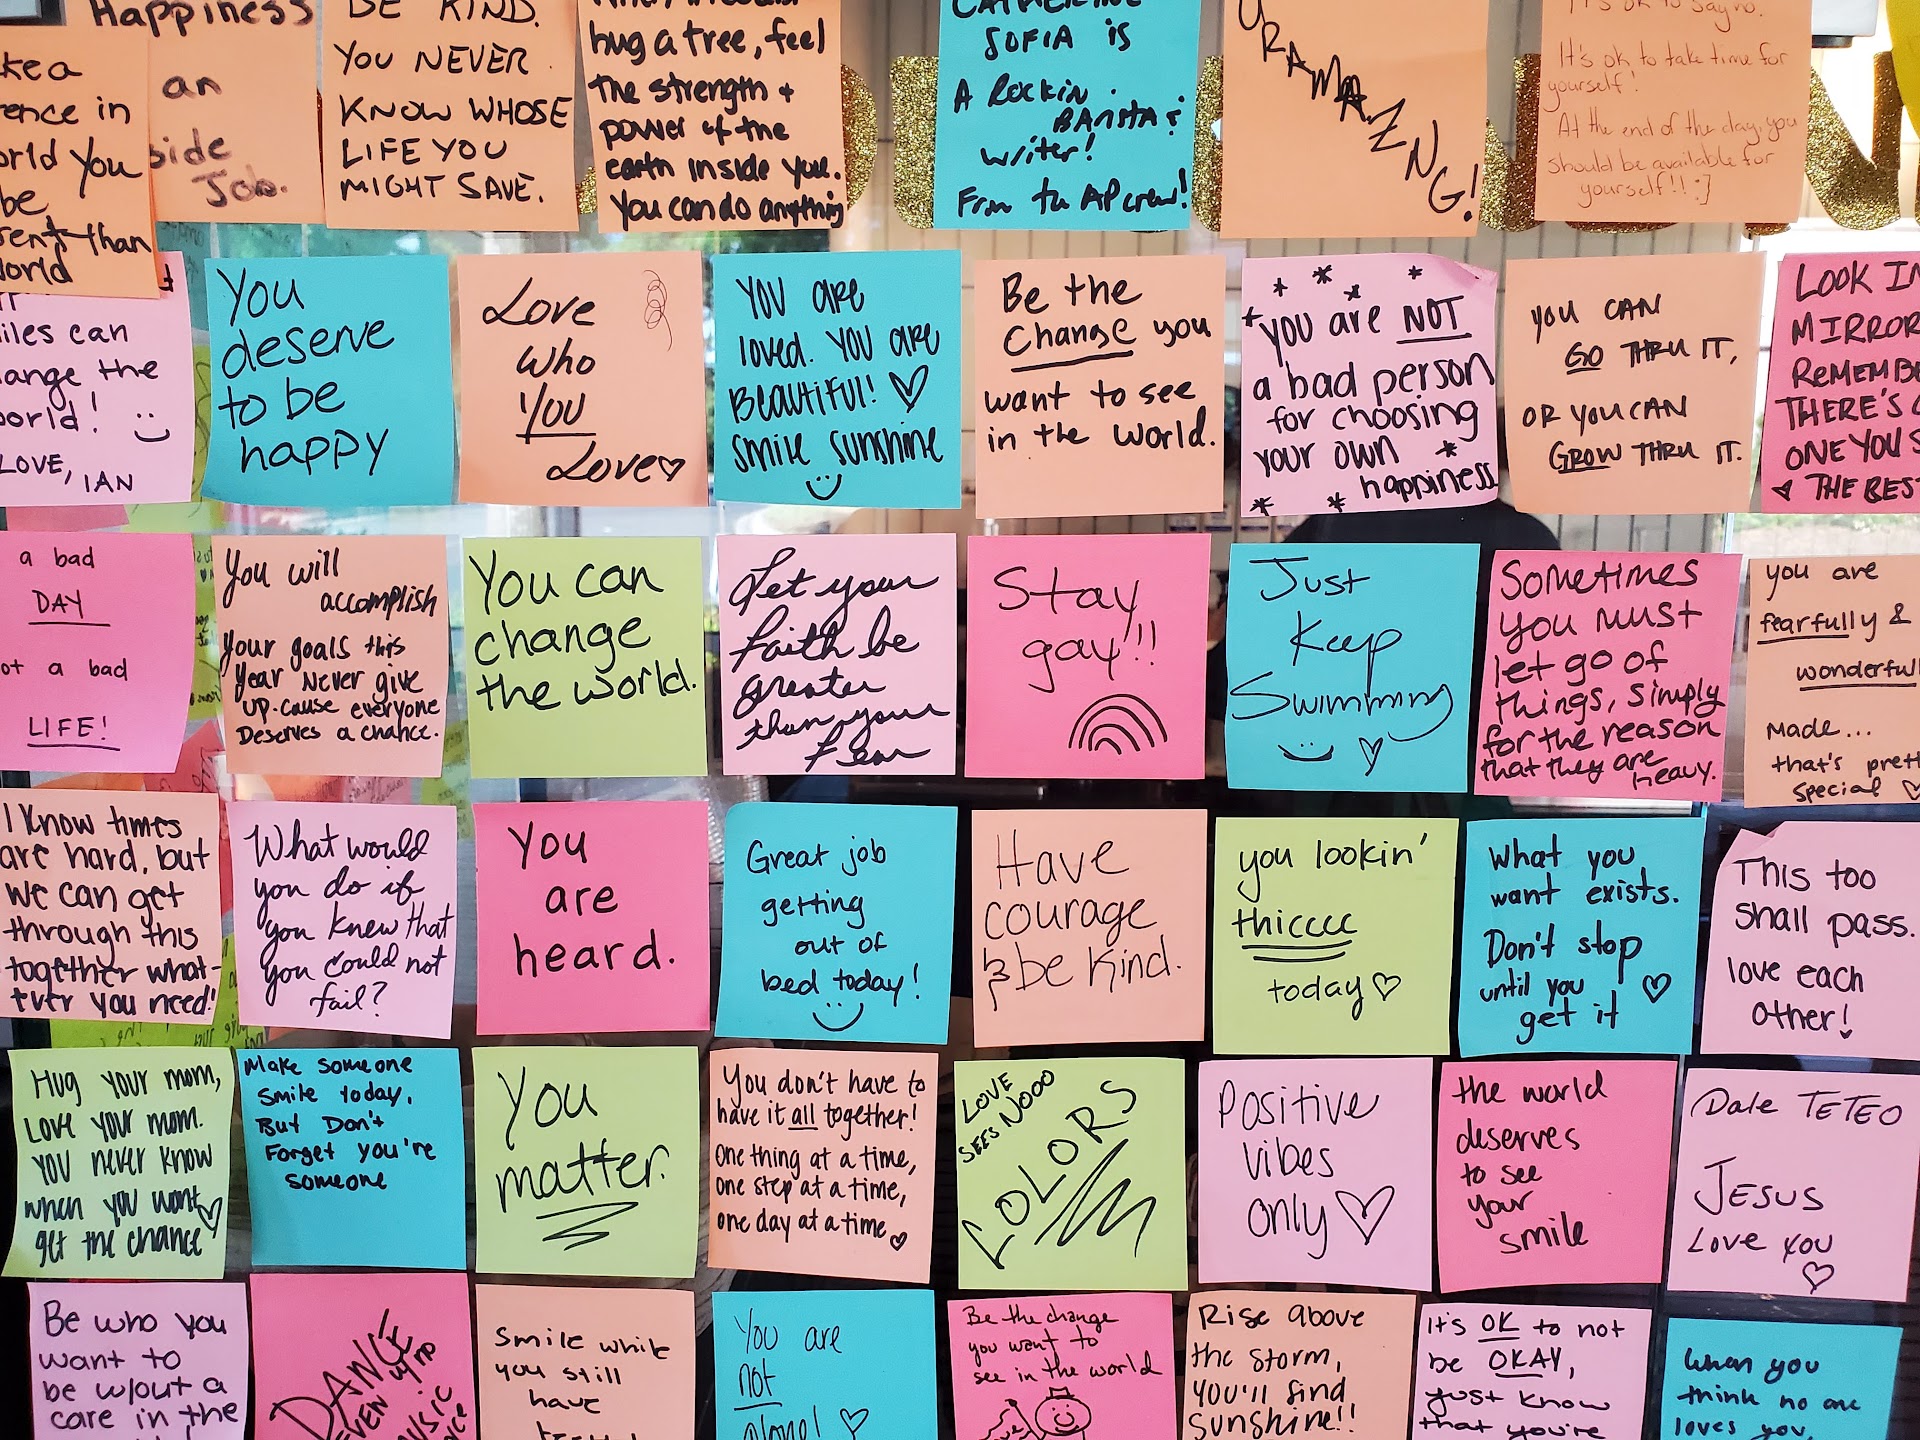 Happiness
an
side
Job.
ke a
rence in
orld you
be
rent than
world
BE KIND.
YOU NEVER
KNOW WHOSE
LIFE YOU
MIGHT SAVE.
hug a tree, feel
the strength +
power of the
earth inside you.
You can do anything
CATHERINE
SOFIA is
A Rockin
BARISTA &
writer!
From the AP crew!
U R AMAZNG!
It's ok to say no.
It's ok to take time for
yourself!
At the end of the day, you
should be available for
yourself!! :]
iles can
ange the
orld!
LOVE, IAN
You
deserve
to be
happy
Love
Who
YOU
Love
YOU ARE
loved. YOU ARE
BEAUTIFUL!
smile sunshine
Be the
Change you
want to see
in the world.
you are NOT
a bad person
for choosing
your own
happiness
YOU CAN
GO THRU IT,
OR YOU CAN
GROW THRU IT.
LOOK IN
MIRROR
REMEMBE
THERE'S
ONE YOU S
THE BEST
a bad
DAY
ot a bad
LIFE!
You will
accomplish
Your goals this
Year Never give
up. cause everyone
Deserves a chance.
You can
change
the world.
Let your
faith be
greater
than your
fear
Stay
gay!!!
Just
Keep
Swimming
Sometimes
you must
let go of
things, simply
for the reason
that they are
heavy.
you are
fearfully &
wonderful
Made...
that's prett
special
I know times
are hard, but
we can get
through this
together what-
ever you need!
What would
you do if
you knew that
you could not
fail?
You
are
heard.
Great job
getting
out of
bed today!
Have
courage
& be kind.
you lookin'
thicccc
today
What you
want exists.
Don't stop
until you
get it
This too
shall pass.
love each
other!
Hug your mom,
Love your mom.
You never know
when you wont
get the chance
Make someone
smile today,
But Don't
Forget you're
someone
You
matter.
You don't have to
have it all together!
One thing at a time,
one step at a time,
one day at a time
LOVE
SEES NOOO
COLORS
Positive
vibes
only
the world
deserves
to see
your
smile
Dale TETEO
JESUS
Love you
Be who you
want to
be w/out a
care in the
DANCE
EVEN w/ no
music
Smile while
you still
have
You are
not
alone!
Be the change
you want to
see in the world
Rise above
the storm,
you'll find
sunshine!!
It's OK to not
be OKAY,
just know
that you're
when you
think no one
loves you,